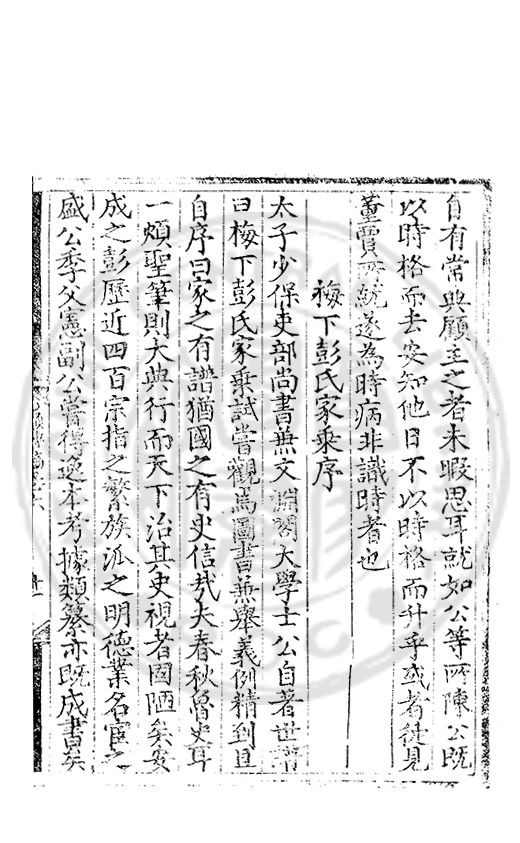 自有常典顧主之者未暇思耳就如公等所陳公既
以時格而去安知他日不以時格而升乎或者徒見
董賈所就遂為時病非識時者也
梅下彭氏家乘序
太子少保吏部尚書兼文淵閣大學士公自著世譜
曰梅下彭氏家乘試嘗觀焉圖書兼舉義例精到且
自序曰家之有譜猶國之有史信哉夫春秋魯史耳
一頻聖筆則大典行而天下治其史視者固陋矣安
成之彭歷近四百宗指之繁族派之明德業名宦之
盛公季父憲副公嘗得逸本考據類纂亦既成書矣